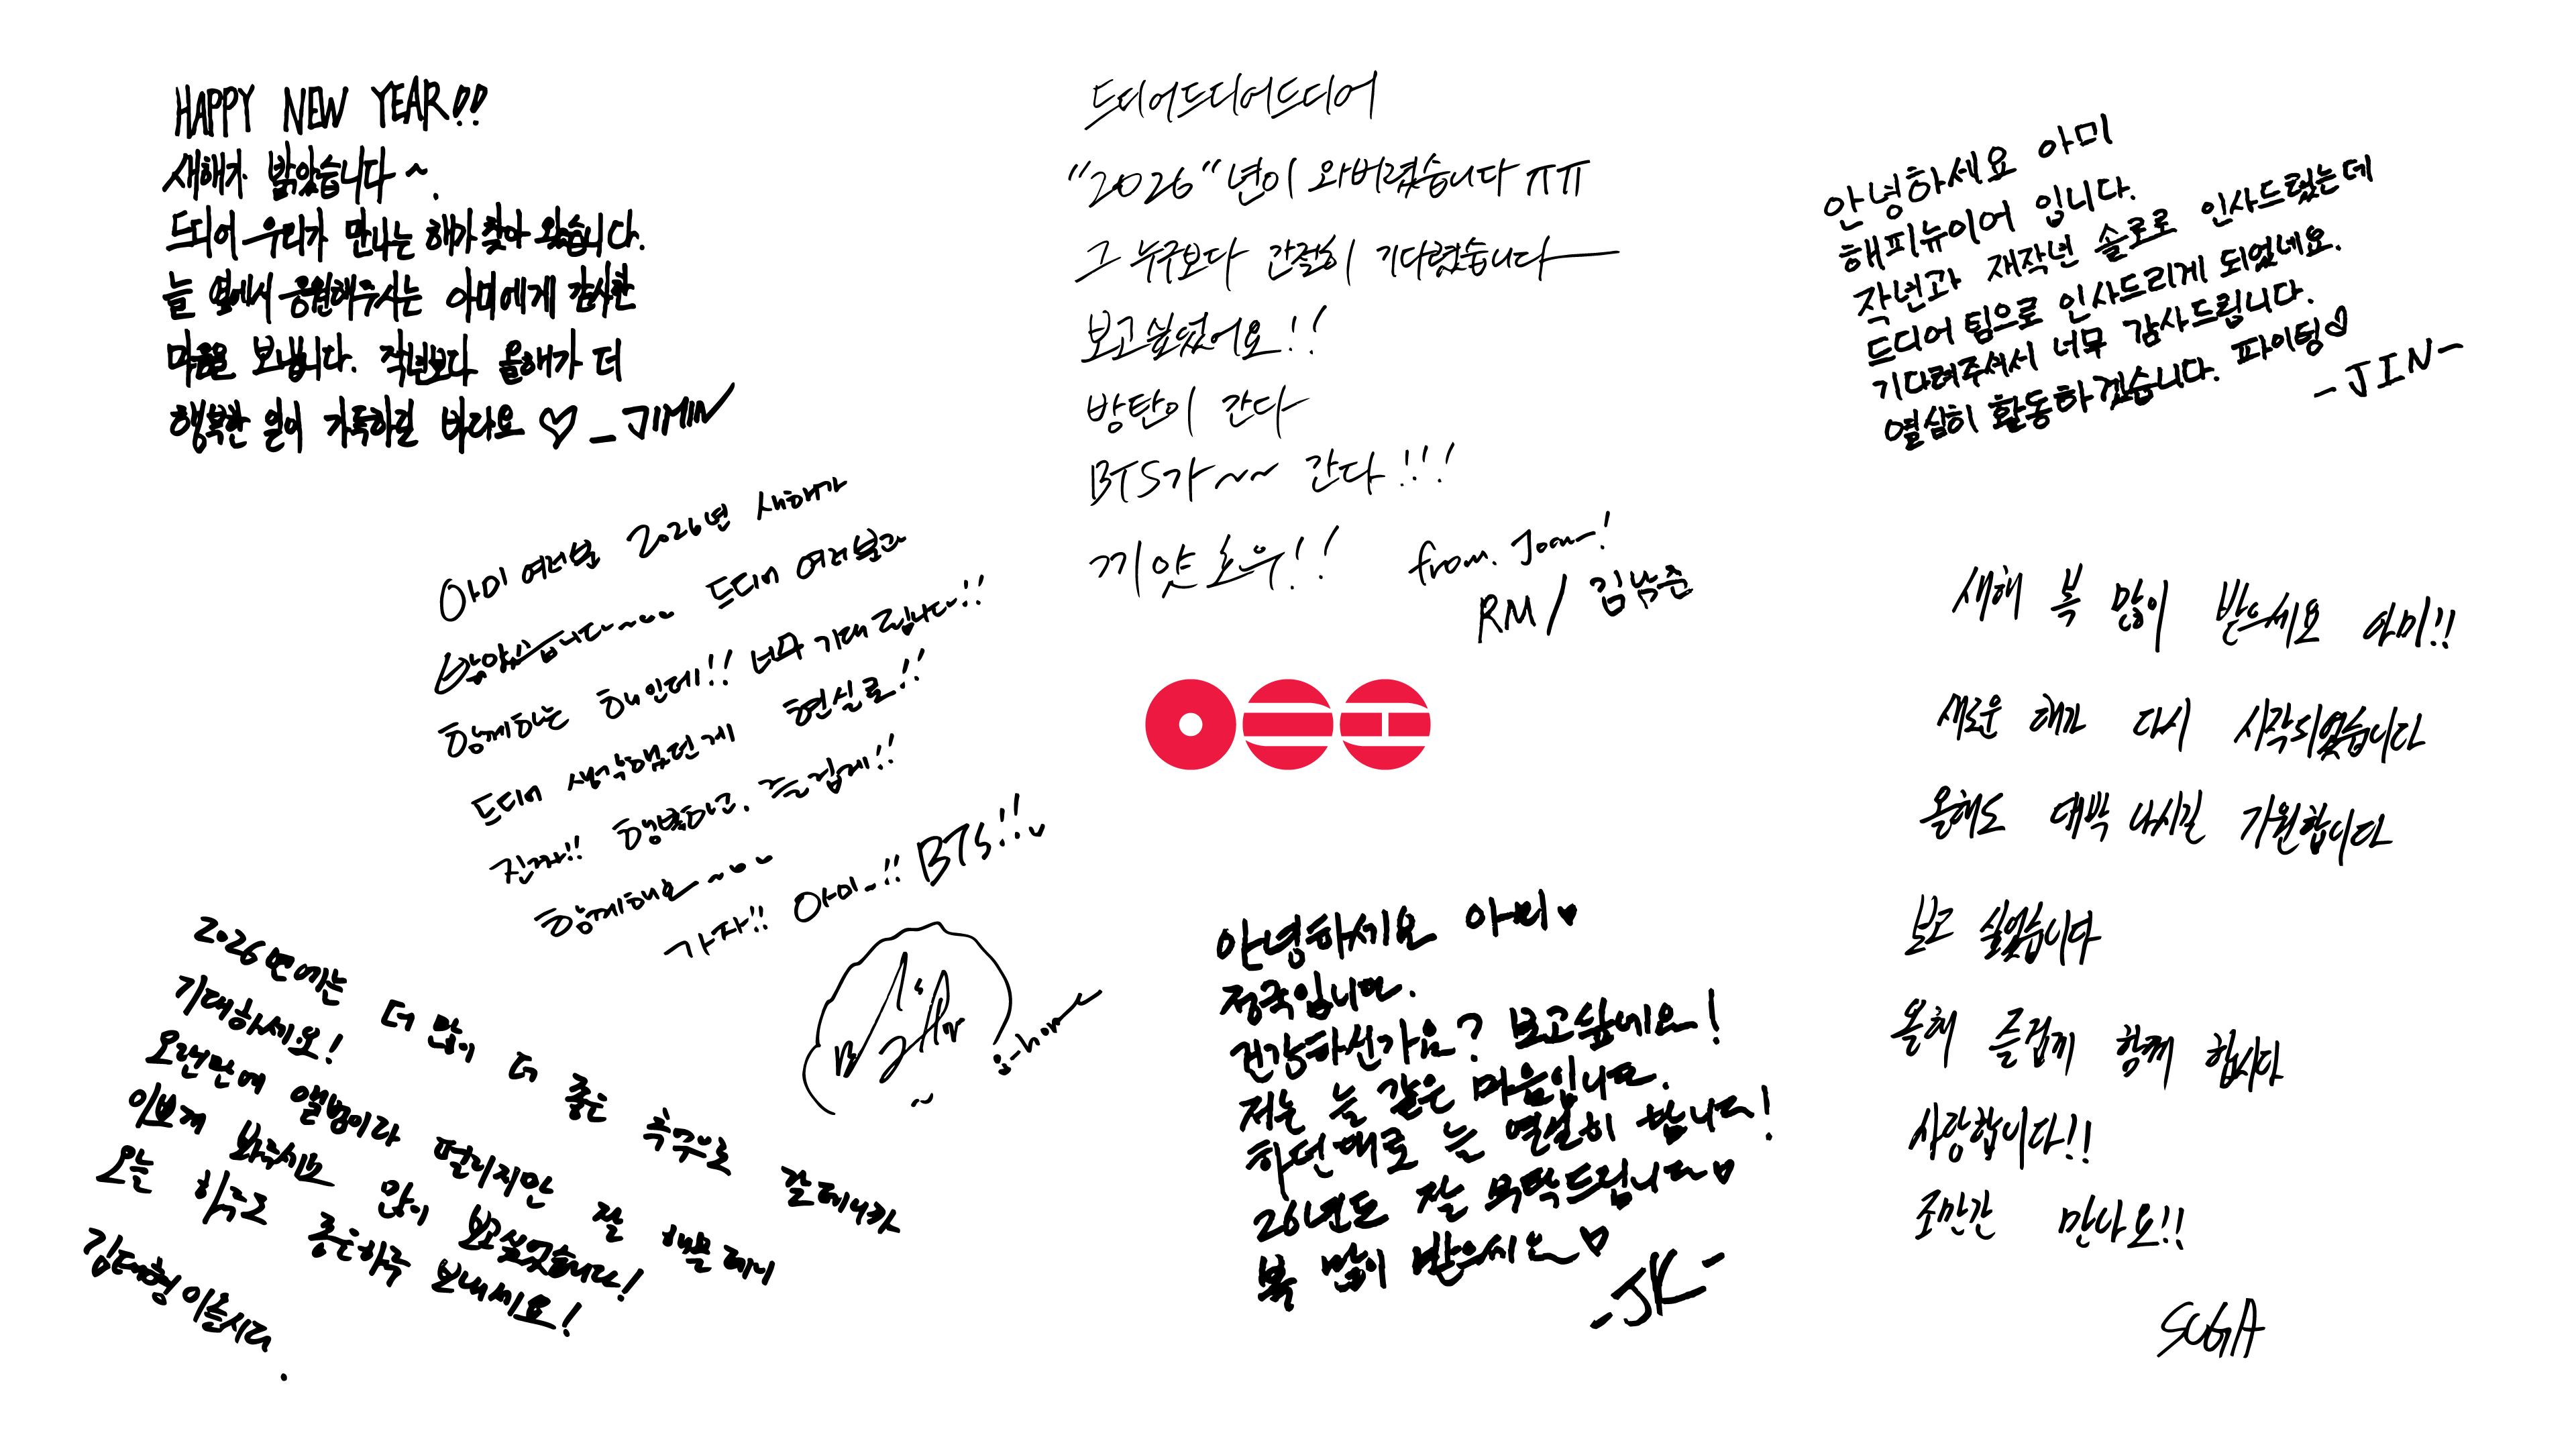 HAPPY NEW YEAR!!
새해가 밝았습니다~.
드디어 우리가 만나는 해가 찾아 왔습니다.
늘 옆에서 응원해주시는 아미에게 감사한
마음을 보냅니다. 작년보다 올해가 더
행복한 일이 가득하길 바라요 ♡ _JIMIN
드디어드디어드디어
"2026"년이 와버렸습니다 ㅠㅠ
그 누구보다 간절히 기다렸습니다
보고싶었어요!!
방탄이 간다
BTS가~~ 간다!!!
끼얏호우!! from. Joon!
RM / 김남준
안녕하세요 아미
해피뉴이어 입니다.
작년과 재작년 솔로로 인사드렸는데
드디어 팀으로 인사드리게 되었네요.
기다려주셔서 너무 감사드립니다.
열심히 활동하겠습니다. 파이팅♡
-JIN-
아미 여러분 2026년 새해가
밝았습니다~~~ 드디어 여러분과
함께하는 해인데!! 너무 기대됩니다!!
드디어 생각했던게 현실로!!
진짜!! 행복하고, 즐겁게!!
함께해요~~~
가자!! 아미~!! BTS!!
j-hope
새해 복 많이 받으세요 아미!!
새로운 해가 다시 시작되었습니다
올해도 대박 나시길 기원합니다
보고 싶었습니다
올해 즐겁게 함께 합시다
사랑합니다!!
조만간 만나요!!
SUGA
2026년에는 더 많이 더 좋은 추구으로 갈테니까
기대하세요!
오랜만에 앨범이라 떨리지만 잘 해볼테니
이쁘게 봐주세요 많이 보고싶었습니다!
오늘 하루도 좋은하루 보내세요!
김태형 이올시다.
안녕하세요 아미♥
정국입니다.
건강하신가요? 보고싶네요!
저는 늘 같은 마음입니다.
하던대로 늘 열심히 합니다!
26년도 잘 부탁드립니다♡
복 많이 받으세요♡
-JK-